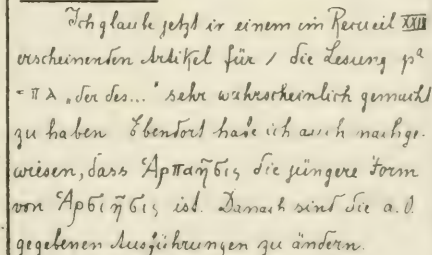 Ich glaube jetzt in einem im Recueil XXIII
erscheinenden Artikel für / die Lesung pa
= πλ „der des..." sehr wahrscheinlich gemacht
zu haben Ebendort habe ich auch nachge-
wiesen, dass Ἁρπαῆσις die jüngere Form
von Ἁρσιῆσις ist. Danach sind die a.O.
gegebenen Ausführungen zu ändern.